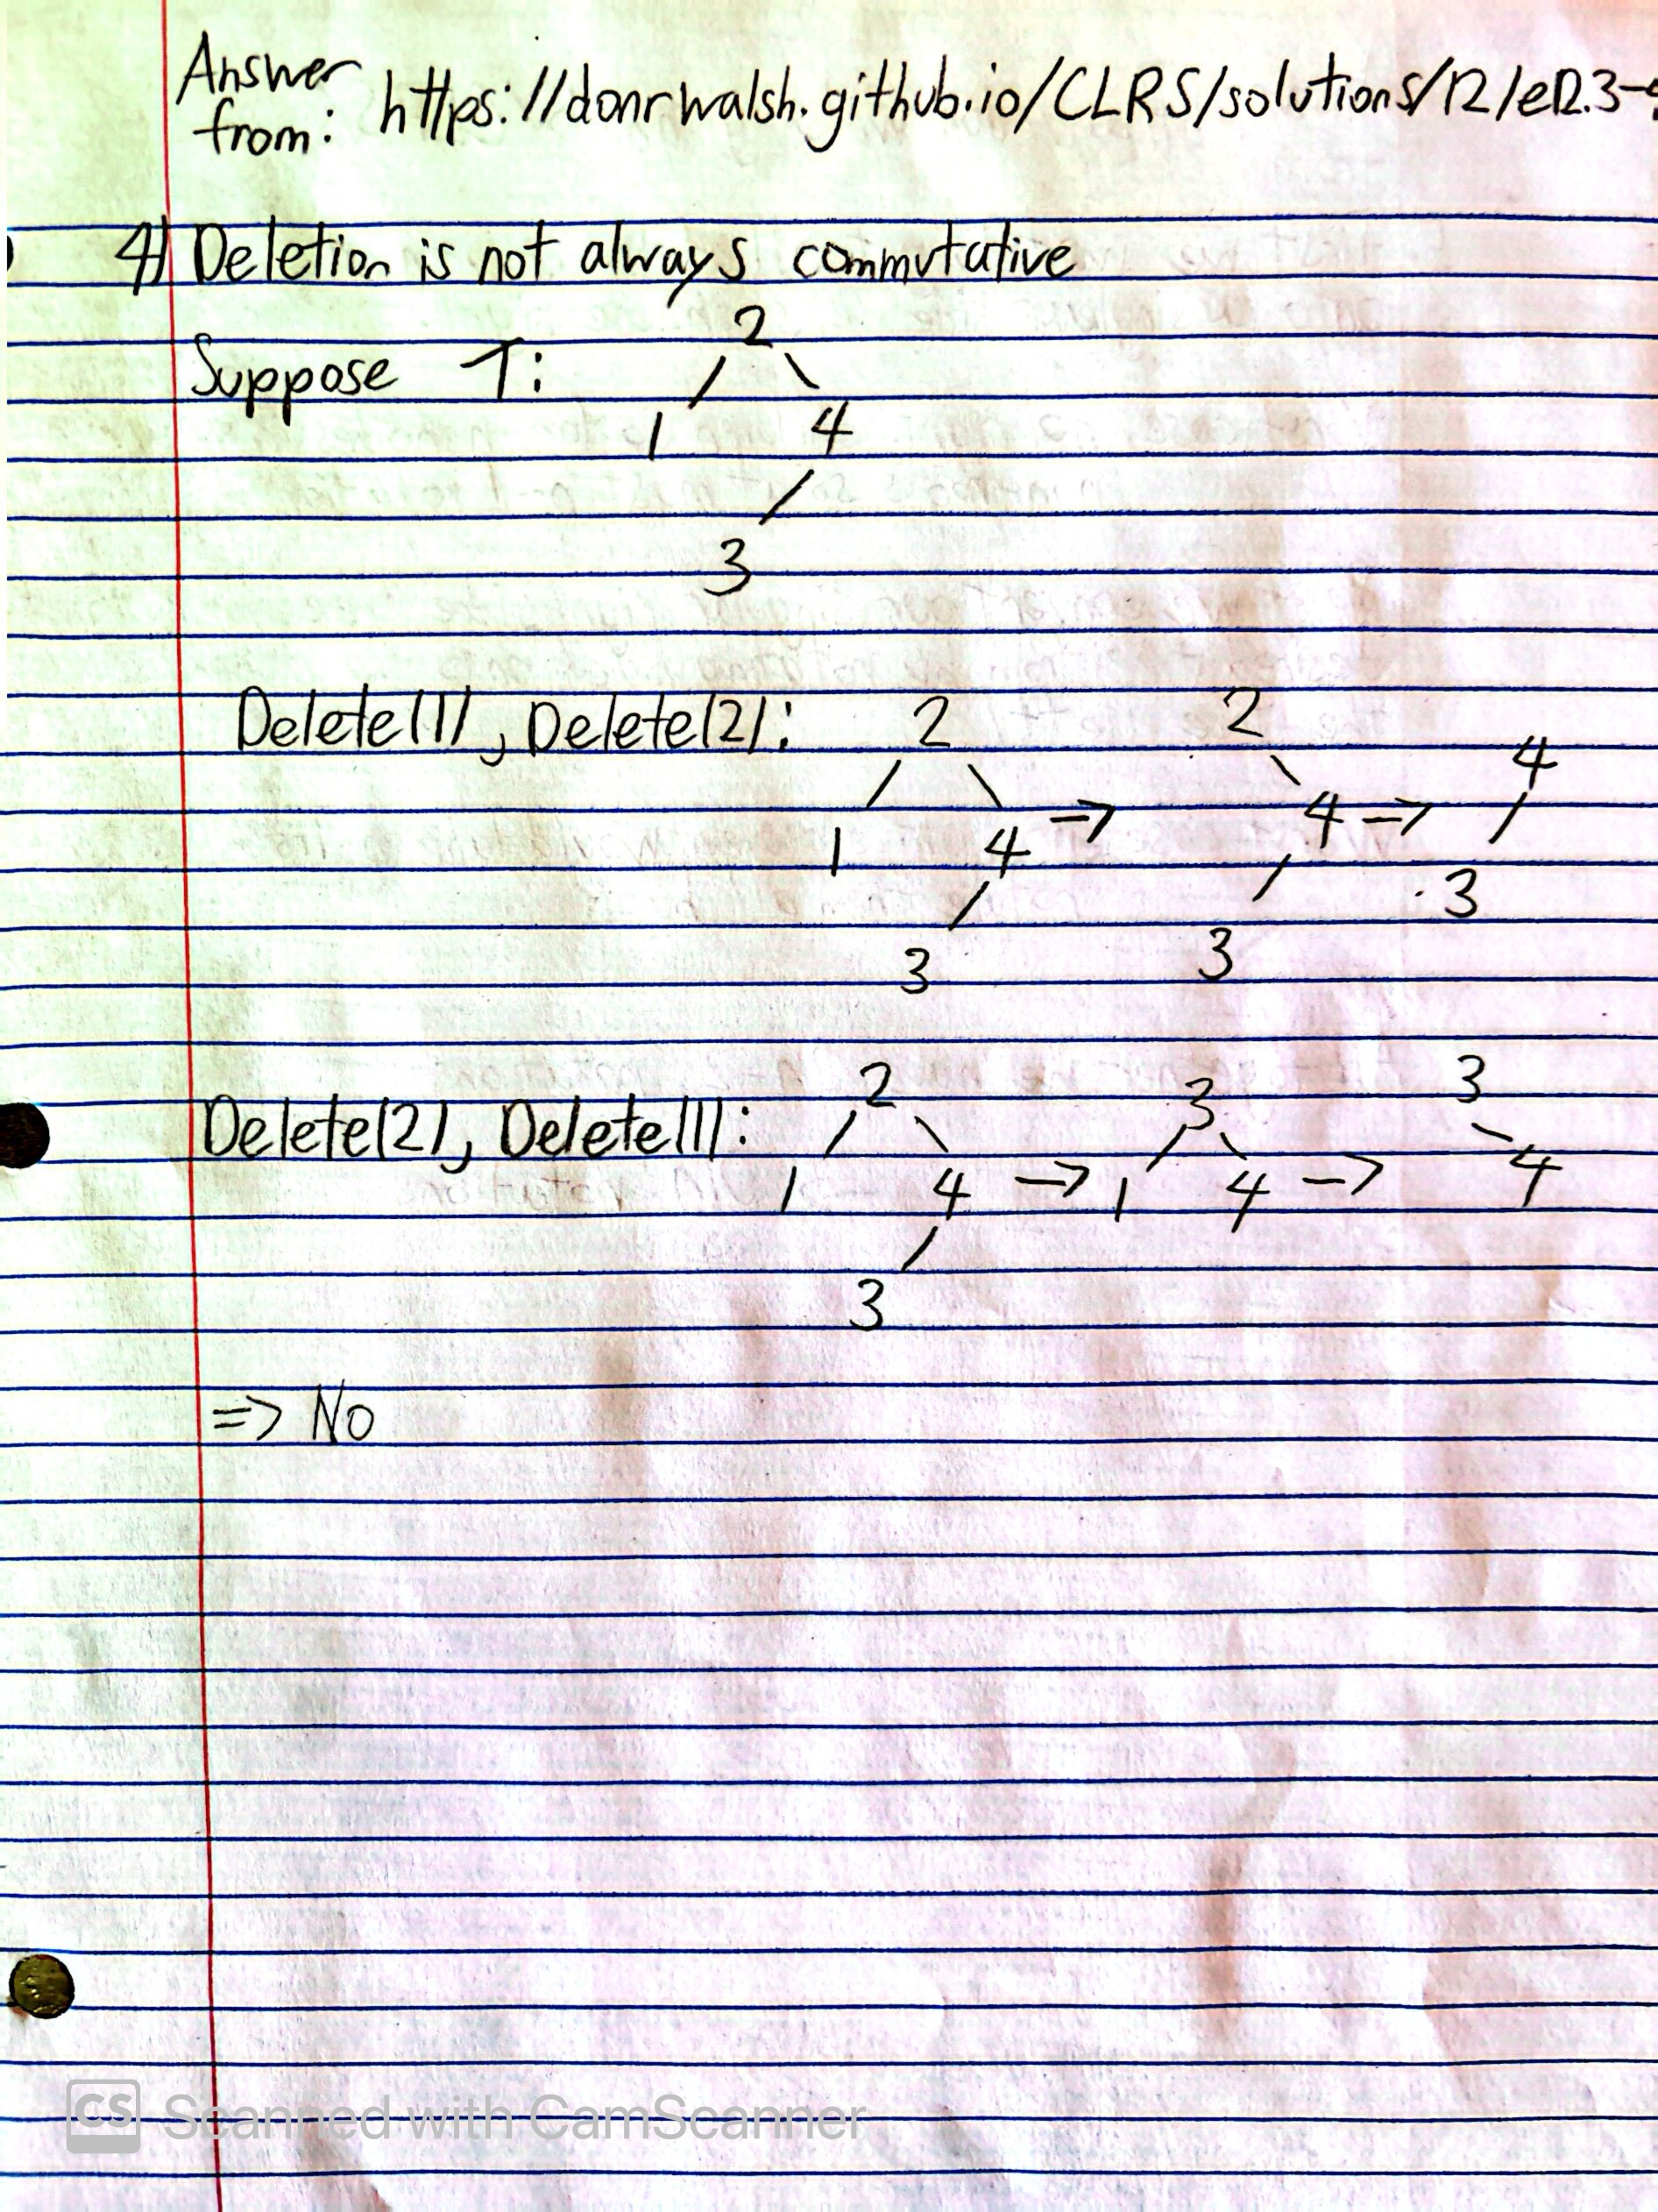 Answer
from: https://donrwalsh.github.io/CLRS/solutions/12/e12.3-
4) Deletion is not always commutative
2
Suppose T: / \
1 4
/
3
Delete(1), Delete(2): 2 2
/ \ \ 4
1 4 => 4 => /
/ / 3
3 3
Delete(2), Delete(1): 2 3 3
/ \ / \ \
1 4 -> 1 4 -> 4
/
3
=> No
CS Scanned with CamScanner